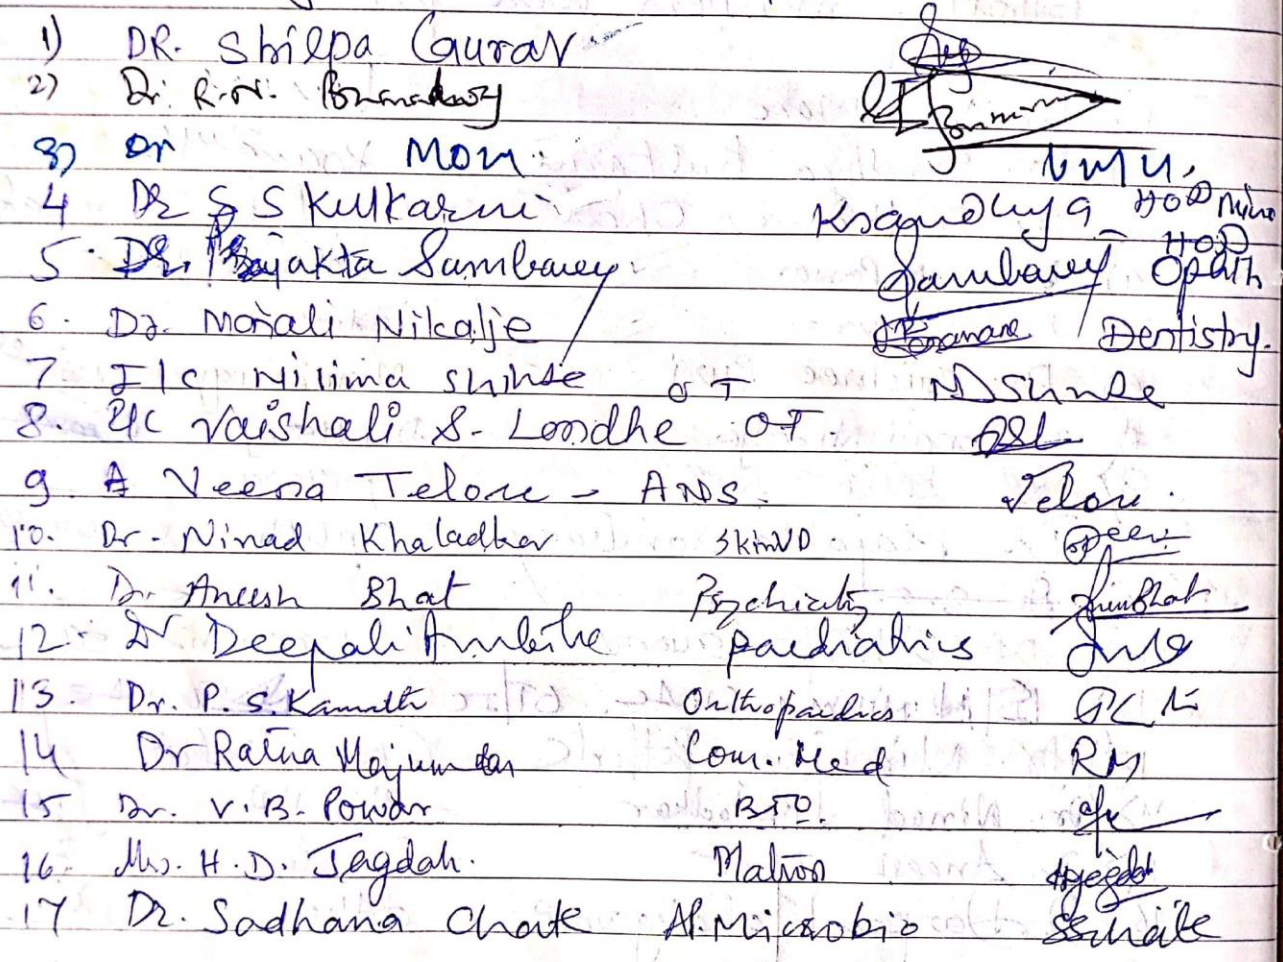 1) DR. Shilpa Gurav
2) Dr. R.N.
3) Dr Moni
4 Dr S S Kulkarni HOD Micro
5. Dr. Prajakta Sambarey Sambarey HOD Opath
6. Dr. Monali Nikalje Dentistry.
7 I/c Nilima Shinde OT NDShinde
8. I/c Vaishali S. Londhe OT.
9. A Veena Telore - ANS. Telore.
10. Dr. Ninad Khaladkar Skin VD
11. Dr. Aneesh Bhat Psychiatry AneeBhat
12. Dr Deepali Ambike paediatrics
13. Dr. P. S. Kamath Orthopaedics
14 Dr Ratna Majumdar Com. Med RM
15 Dr. V. B. Powar BTO.
16 Mrs. H. D. Jagdah. Matron
17 Dr. Sadhana Chate A.P. Microbio SSChate